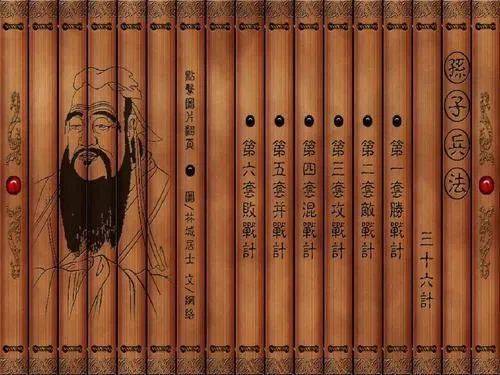 孫子兵法
三十六計
第一套勝戰計
第二套敵戰計
第三套攻戰計
第四套混戰計
第五套并戰計
第六套敗戰計
點擊圖片翻頁
圖/林城居士 文/網絡